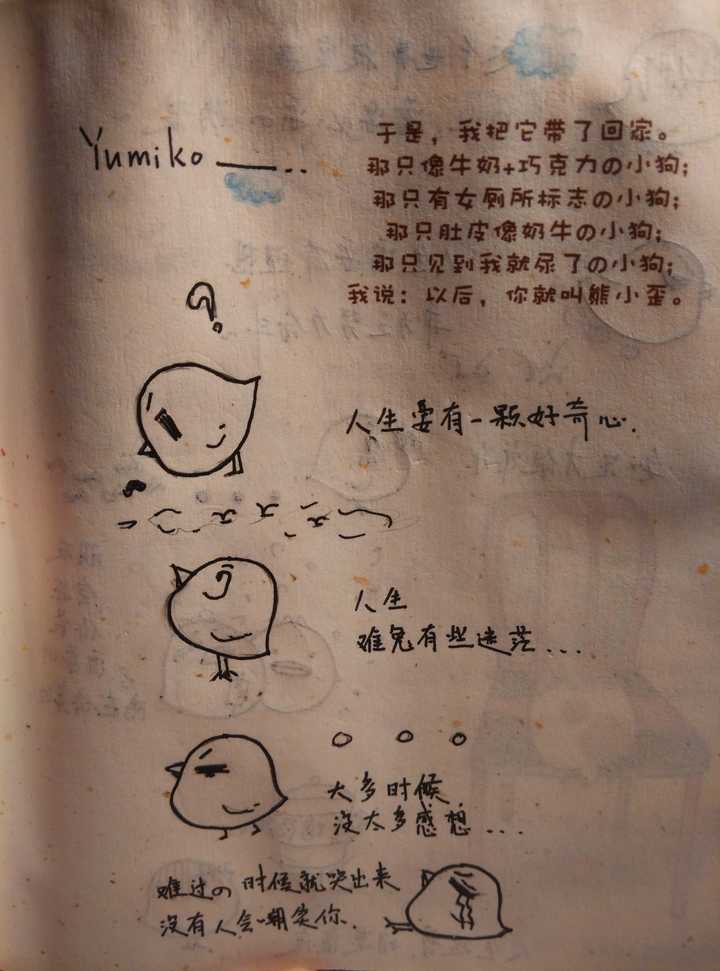 Yumiko
于是，我把它带了回家。
那只像牛奶+巧克力の小狗；
那只有女厕所标志の小狗；
那只肚皮像奶牛の小狗；
那只见到我就尿了の小狗；
我说：以后，你就叫熊小歪。
?
人生要有一颗好奇心.
人生
难免有些迷茫...
大多时候
没太多感想....
难过の时候就哭出来
没有人会嘲笑你.